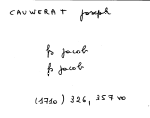 CAUWERAT Joseph
fs jacob
fs jacob
(1710) 326, 357 vo